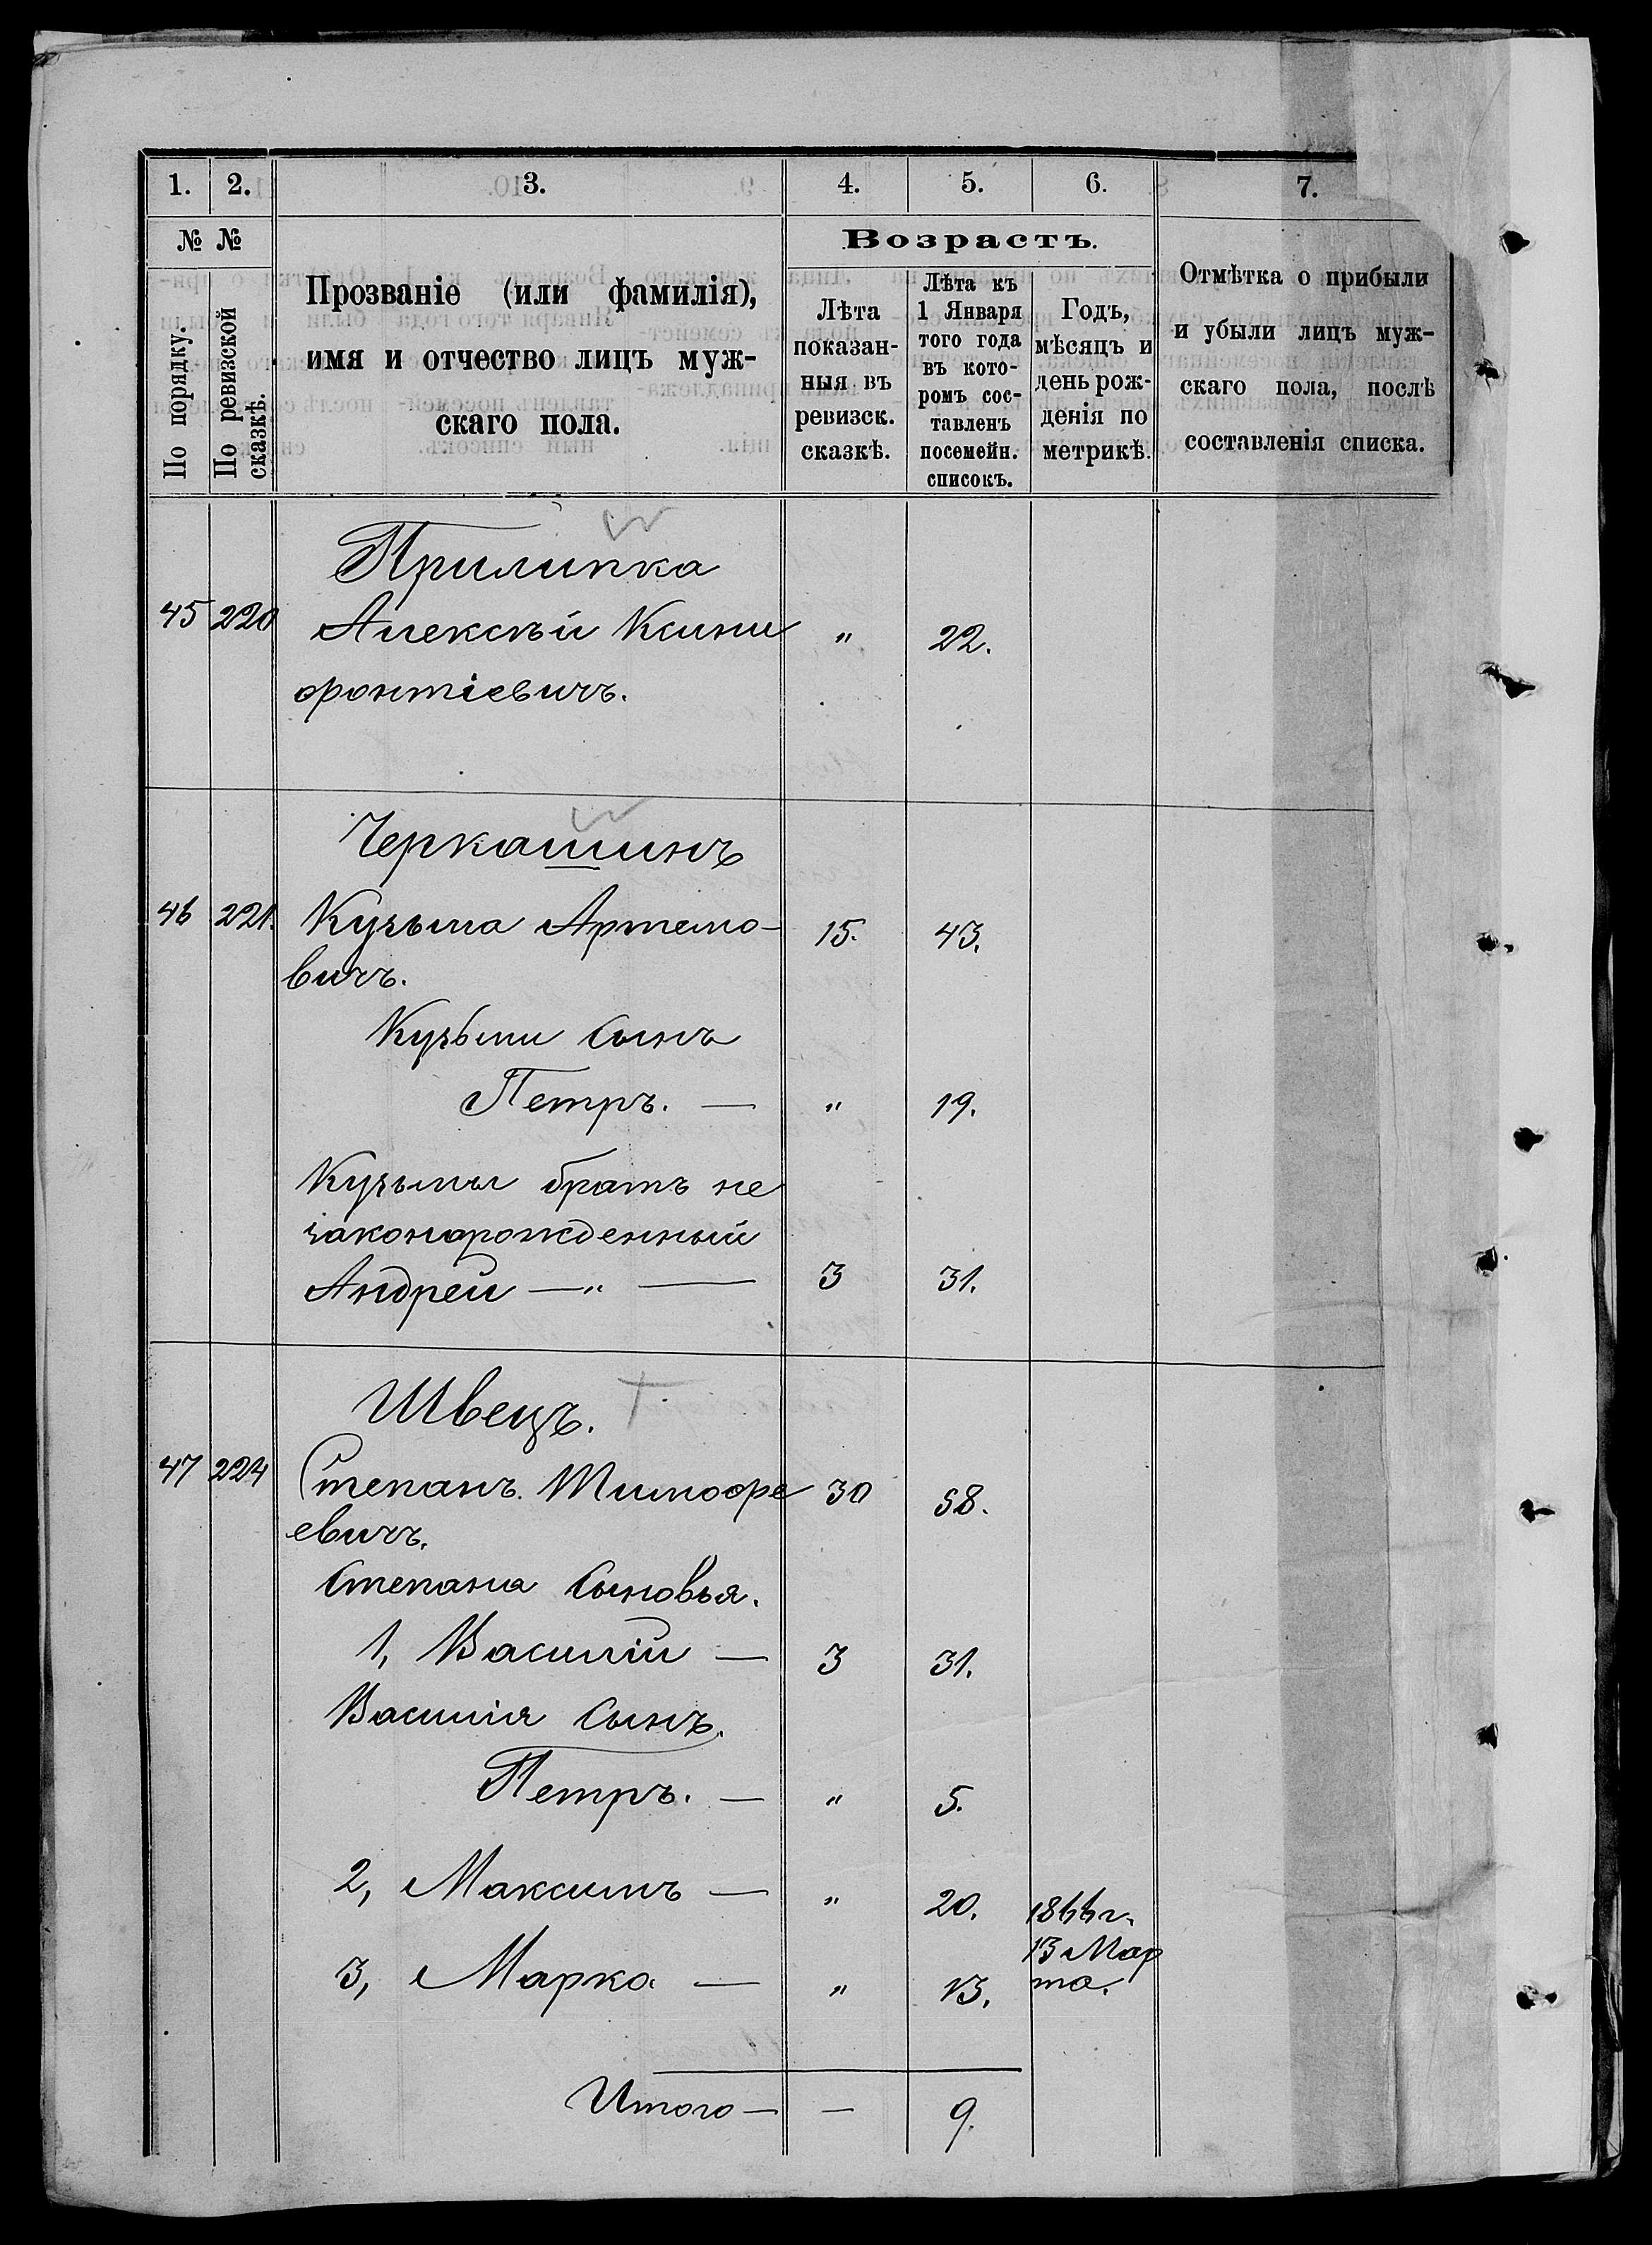 1. 2. 3. 4. 5. 6. 7.
№ №
По порядку.
По ревизской сказкѣ.
Прозваніе (или фамилія),
имя и отчество лицъ муж-
скаго пола.
Возрастъ.
Лѣта
показан-
ныя въ
ревизск.
сказкѣ.
Лѣта къ
1 Января
того года
въ кото-
ромъ сос-
тавленъ
посемейн.
списокъ.
Годъ,
мѣсяцъ и
день рож-
денія по
метрикѣ.
Отмѣтка о прибыли
и убыли лицъ муж-
скаго пола, послѣ
составленія списка.
Прилипка
45 220 Алексѣй Ксино „ 22.
фонтіевичъ.
Черкашинъ
46 221. Кузьма Артемо- 15. 43.
вичъ.
Кузьми Сынъ
Петръ. — „ 19.
Кузьмы братъ не
законорожденный
Андрей —„— 3 31.
Швецъ.
47 224 Степанъ. Тимофе 30 58.
евичъ.
Степана Сыновья.
1, Василій — 3 31.
Василія Сынъ.
Петръ. — „ 5.
2, Максимъ — „ 20. 1866 г.
13 Мар
3, Марко — „ 13. та.
Итого — — 9.